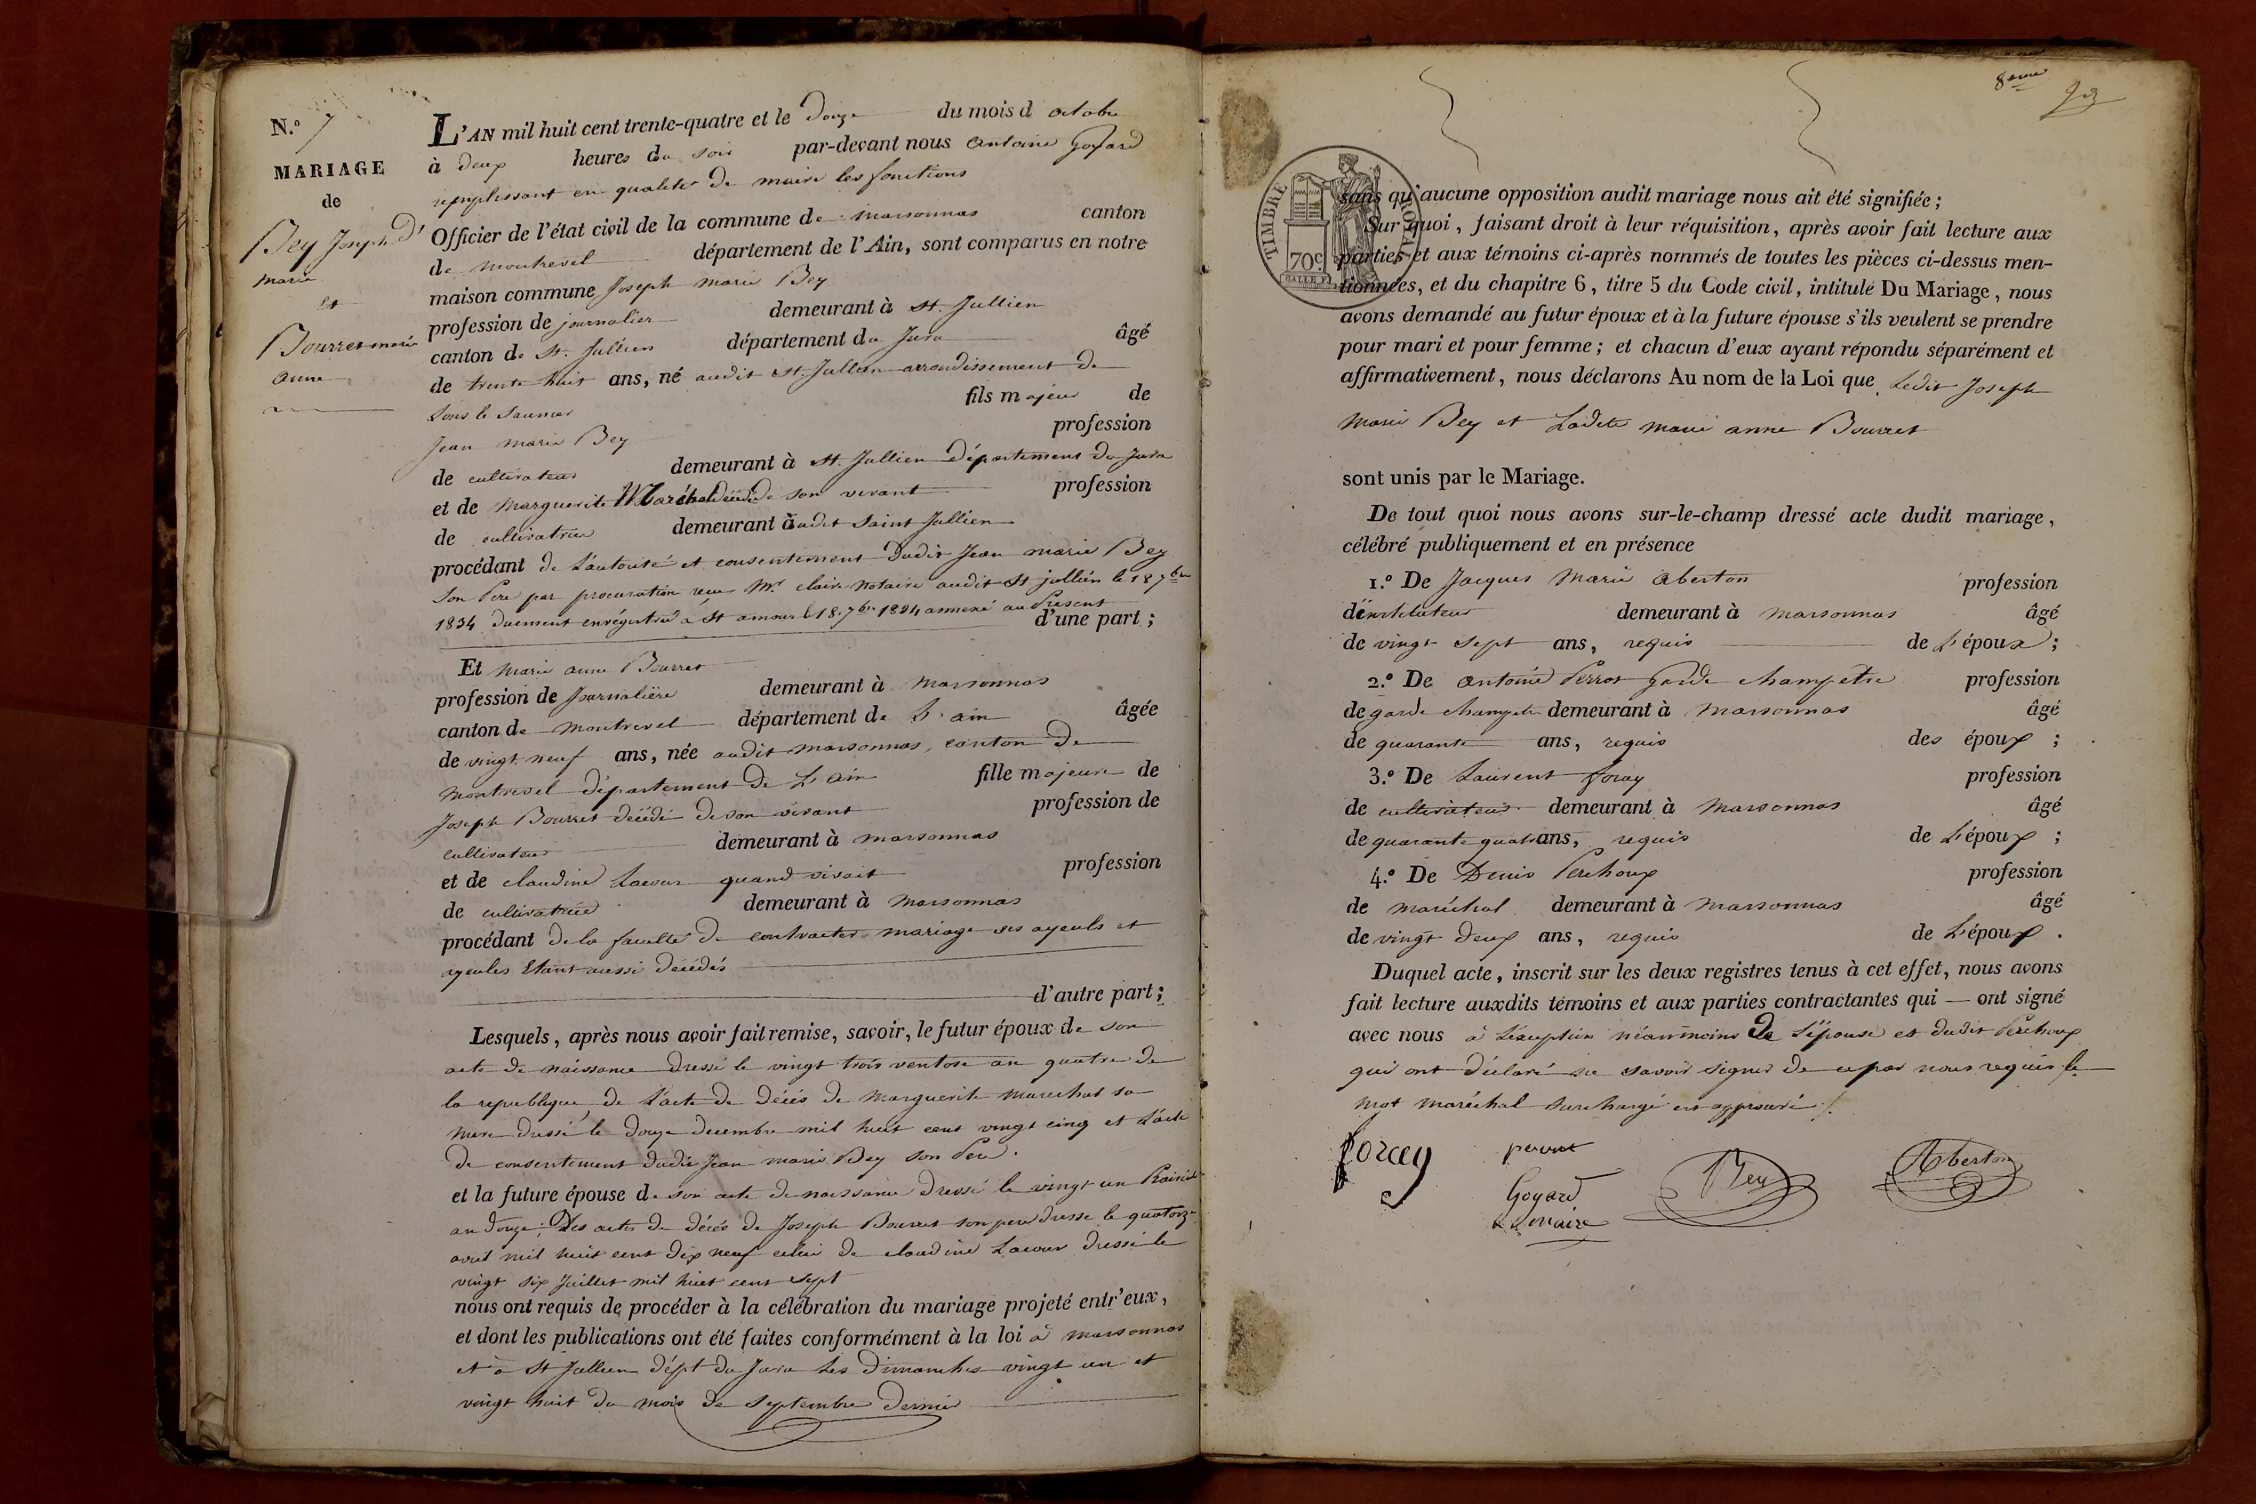 N.º 7
MARIAGE
de
Bey Joseph
marie
et
Bourret marie
anne
L'AN mil huit cent trente-quatre et le Douze du mois d octobre
à deux heures du soir par-devant nous antoine Goyard
remplissant en qualité de maire les fonctions
Officier de l'état civil de la commune de marsonnas canton
de montrevel département de l'Ain, sont comparus en notre
maison commune Joseph marie Bey
profession de journalier demeurant à St. Jullien
canton de St. Jullien département du Jura âgé
de trente huit ans, né audit St. Jullien arrondissement de
Lons le Saunier fils majeur de
Jean marie Bey profession
de cultivateur demeurant à St. Jullien département du Jura
et de marguerite Maréchal décédée de son vivant profession
de cultivatrice demeurant à audit Saint Jullien
procédant de L'autorité et consentement Dudit Jean marie Bey
son Père par procuration reçue Mr. claire notaire audit St jullien le 18 7bre
1834 duement enrégistré à St amour le 18 7bre 1834 annexé au Présent
d'une part ;
Et Marie anne Bourret
profession de Journalière demeurant à marsonnas
canton de montrevel département de L'ain âgée
de vingt neuf ans, née audit marsonnas, canton de
montrevel département de L'ain fille majeure de
Joseph Bourret décédé de son vivant profession de
cultivateur demeurant à marsonnas
et de claudine Lacour quand vivait profession
de cultivatrice demeurant à marsonnas
procédant de la faculté de contracter mariage ses ayeuls et
ayeules Etant aussi décédés
d'autre part ;
Lesquels, après nous avoir fait remise, savoir, le futur époux de son
acte de naissance dressé le vingt trois ventose an quatre de
la republique, de L'acte de décés de marguerite marechal sa
mere dressé le douze decembre mil huit cent vingt cinq et L'acte
de consentement dudit Jean marie Bey son Père.
et la future épouse de son acte de naissance dressé le vingt un Prairial
an douze ; Des actes de décés de Joseph Bourret son pere dressé le quatorze
avril mil huit cent dix neuf celui de claudine Lacour dressé le
vingt six Juillet mil huit cent sept
nous ont requis de procéder à la célébration du mariage projeté entr'eux,
et dont les publications ont été faites conformément à la loi à marsonnas
et à St Jullien dépt du Jura les Dimanches vingt un et
vingt huit du mois de septembre dernier
8eme
TIMBRE ROYAL
70 c
sans qu'aucune opposition audit mariage nous ait été signifiée ;
Sur quoi, faisant droit à leur réquisition, après avoir fait lecture aux
parties et aux témoins ci-après nommés de toutes les pièces ci-dessus men-
tionnées, et du chapitre 6, titre 5 du Code civil, intitulé Du Mariage, nous
avons demandé au futur époux et à la future épouse s'ils veulent se prendre
pour mari et pour femme ; et chacun d'eux ayant répondu séparément et
affirmativement, nous déclarons Au nom de la Loi que Ledit Joseph
Marie Bey et Ladite marie anne Bourret
sont unis par le Mariage.
De tout quoi nous avons sur-le-champ dressé acte dudit mariage,
célébré publiquement et en présence
1.º De Jacques Marie Aberton profession
d'instituteur demeurant à marsonnas âgé
de vingt sept ans, requis de L'époux ;
2.º De antoine Perrot garde champetre profession
de garde champetre demeurant à marsonnas âgé
de quarante ans, requis des époux ;
3.º De Laurent foray profession
de cultivateur demeurant à Marsonnas âgé
de quarante quatre ans, requis de L'époux ;
4.º De Denis Perchoux profession
de maréchal demeurant à marsonnas âgé
de vingt deux ans, requis de L'époux .
Duquel acte, inscrit sur les deux registres tenus à cet effet, nous avons
fait lecture auxdits témoins et aux parties contractantes qui — ont signé
avec nous à L'exception néanmoins de L'épouse et dudit Perchoux
qui ont déclaré ne savoir signer de ce par nous requis le
mot maréchal surchargé est approuvé ./.
perrot
Aberton
Goyard
Bey
Lemaire